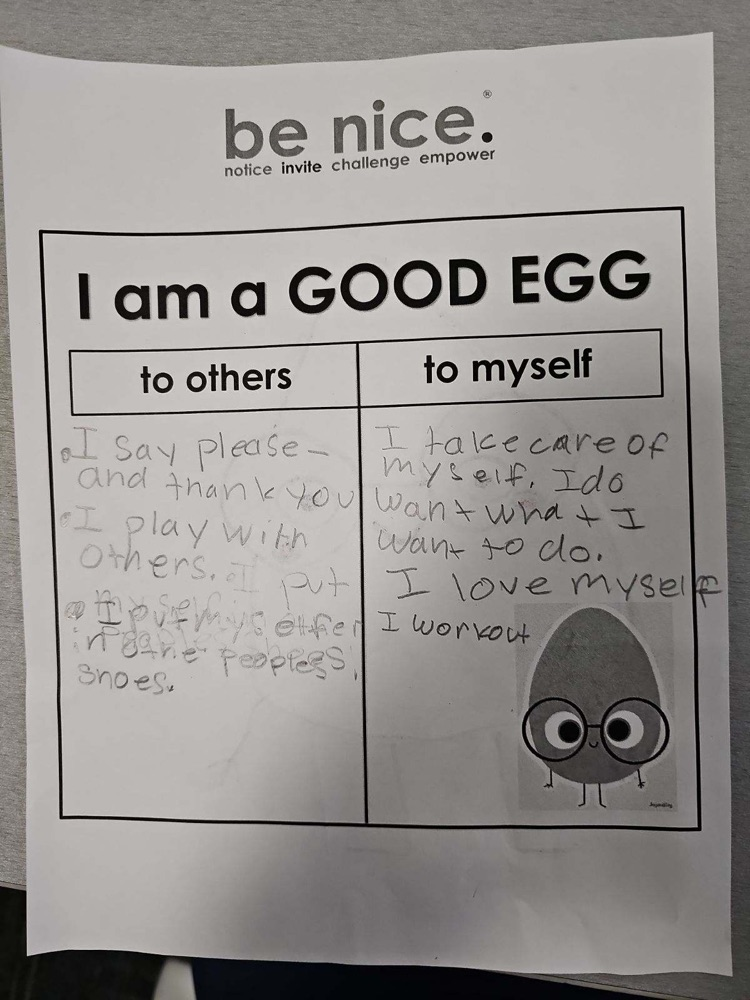 be nice.®
notice invite challenge empower
I am a GOOD EGG
to others
I say please –
and thank you
I play with
others. I put
I put mys
in othe peoples
shoes.
to myself
I take care of
myself. I do
want what I
want to do.
I love myself
I workout